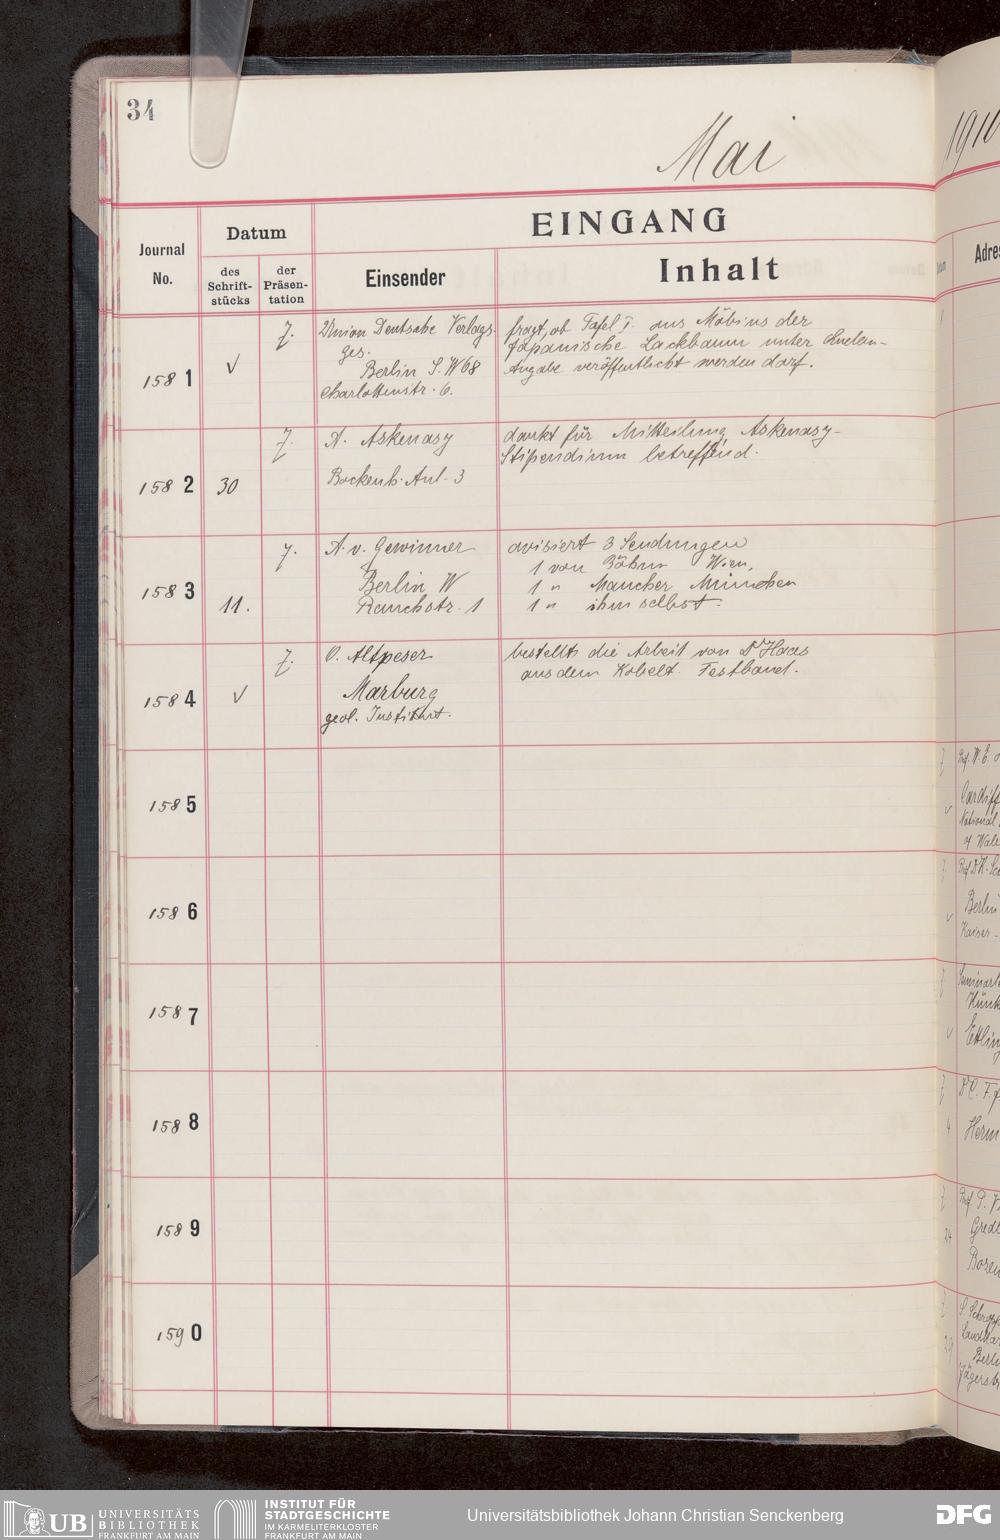 34
Mai
1910
EINGANG
Journal
No.
Datum
des
Schrift-
stücks
der
Präsen-
tation
Einsender
Inhalt
Adres
1581
✓
7.
Union Deutsche Verlags
ges.
Berlin S.W 68
Charlottenstr. 6.
fragt, ob Tafel I. aus Möbius der
Japanische Lackbaum unter
Angabe veröffentlicht werden darf.
1582
30
7.
A. Askenasy
Bockenh. Anl. 3
dankt für Mitteilung Askenasy-
Stipendium betreffend.
1583
11.
7.
A. v. Gwinner
Berlin W
Rauchstr. 1
avisiert 3 Sendungen
1 von Böhm Wien,
1 " Maucher München
1 " ihm selbst.
1584
✓
7.
O. Altpeser
Marburg
geol. Institut.
bestellt die Arbeit von Dr Haas
aus dem Kobelt Festband.
1585
1586
1587
1588
1589
1590
Prof. W. E.
Cardiff
National
of Wale
Berlin
Kaiser-
Ettlin
Herm
Prof. P. V
Gredl
Bozen
Landkar
Berli
Jägerst
UB
UNIVERSITÄTS
BIBLIOTHEK
FRANKFURT AM MAIN
INSTITUT FÜR
STADTGESCHICHTE
IM KARMELITERKLOSTER
FRANKFURT AM MAIN
Universitätsbibliothek Johann Christian Senckenberg
DFG